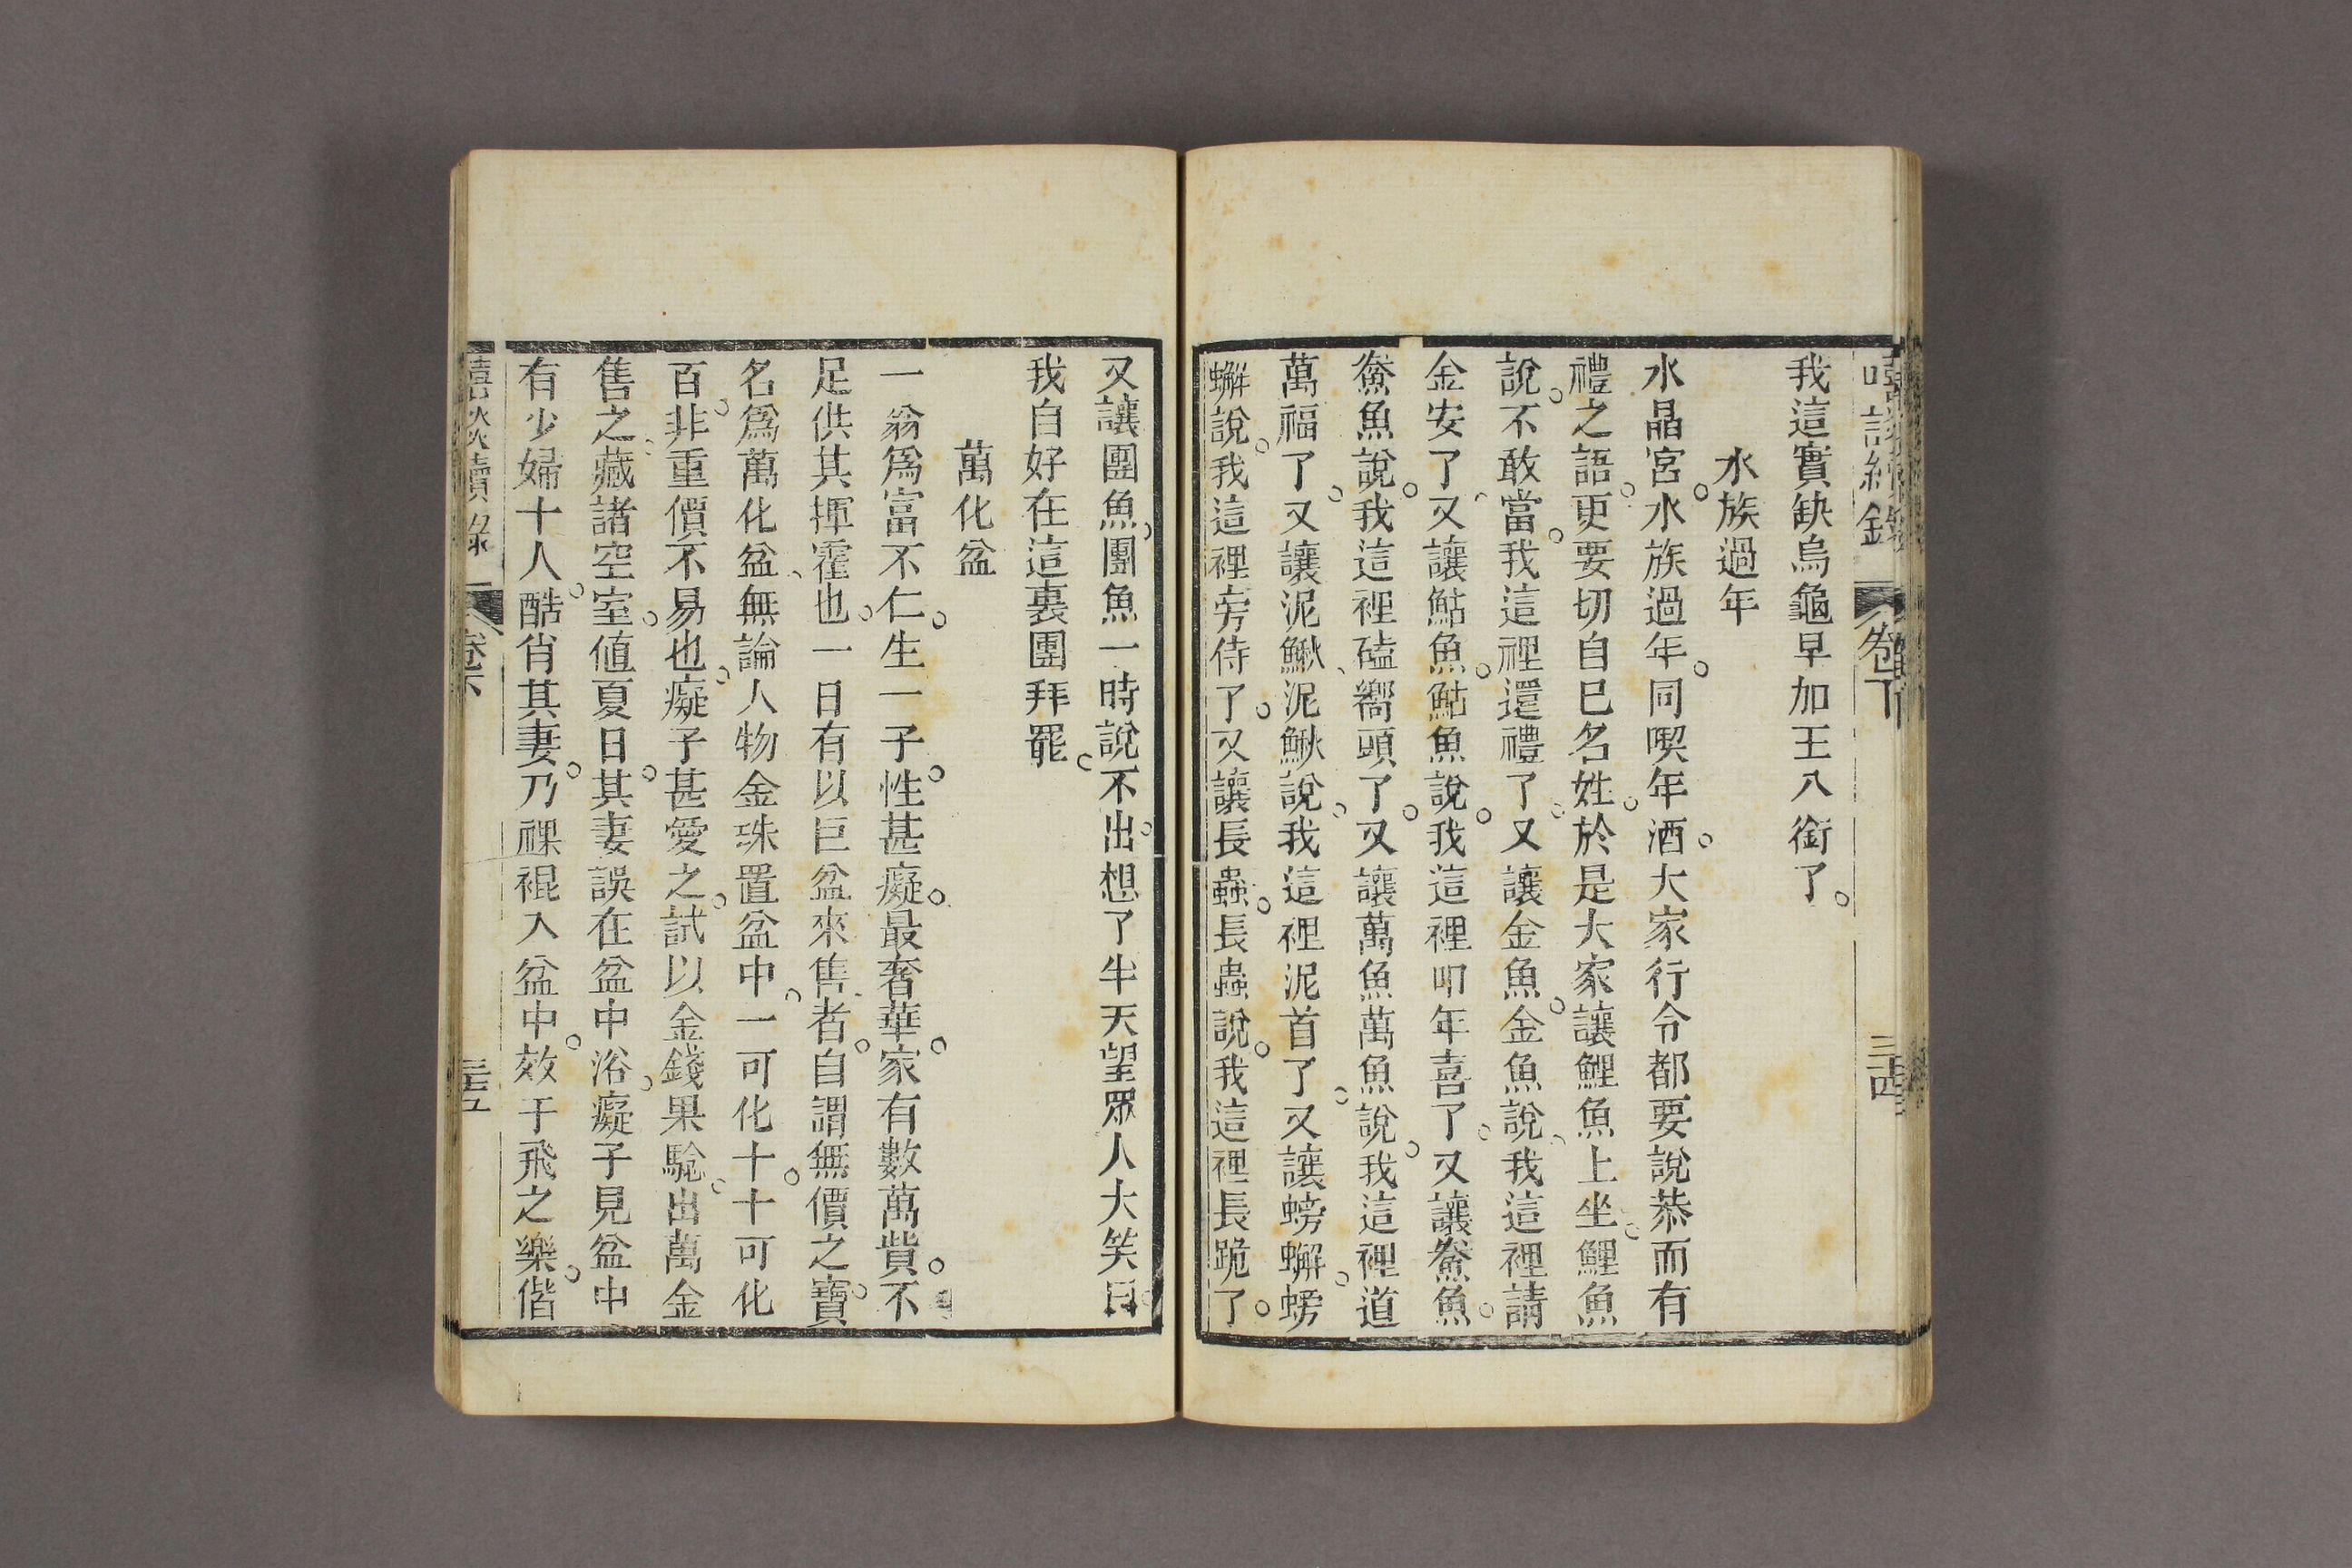 嘻談續錄 卷下 三十四
我這實缺烏龜早加王八銜了。
水族過年
水晶宮。水族過年。同喫年酒。大家行令都要說恭而有
禮之語。更要切自巳名姓。於是大家讓鯉魚上坐。鯉魚
說。不敢當。我這裡還禮了。又讓金魚。金魚說。我這裡請
金安了。又讓鮎魚。鮎魚說。我這裡叩年喜了。又讓鯗魚。
鯗魚說。我這裡磕嚮頭了。又讓萬魚萬魚說。我這裡道
萬福了。又讓泥鰍。泥鰍說。我這裡泥首了。又讓螃蠏。螃
蠏說。我這裡旁侍了。又讓長蟲。長蟲說。我這裡長跪了。
又讓團魚。團魚一時說不出。想了半天望眾人大笑曰。
我自好在這裏團拜罷。
萬化盆
一翁爲富不仁。生一子。性甚癡。最奢華。家有數萬貲。不
足供其揮霍也。一日有以巨盆來售者。自謂無價之寶。
名爲萬化盆。無論人物金珠置盆中。一可化十。十可化
百。非重價不易也。癡子甚愛之。試以金錢果驗。出萬金
售之。藏諸空室。値夏日。其妻誤在盆中浴。癡子見盆中
有少婦十人。酷肖其妻。乃祼裩入盆中。效于飛之樂。偕
嘻談續錄 卷下 三十五